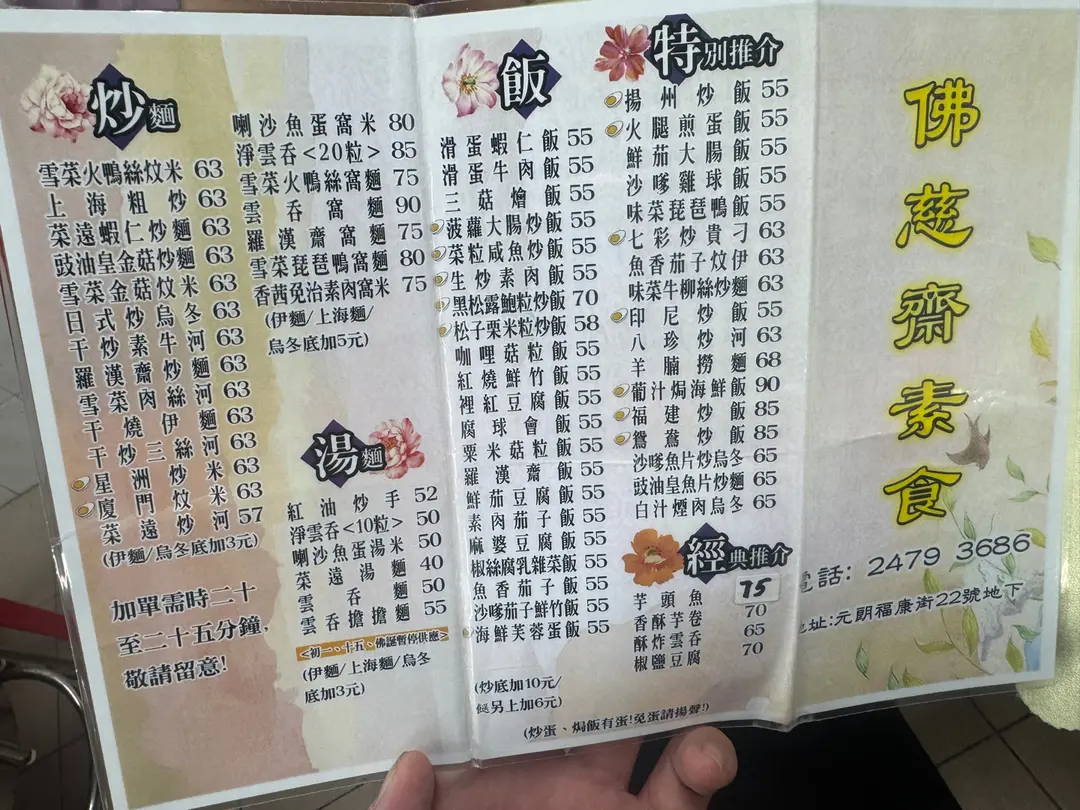 炒麵
雪菜火鴨絲炆米 63
上海粗炒 63
菜遠蝦仁炒麵 63
豉油皇金菇炒麵 63
雪菜金菇炆米 63
日式炒烏冬 63
干炒素牛河 63
羅漢齋炒麵 63
雪菜肉絲河 63
干燒伊麵 63
干炒三絲河 63
星洲炒米 63
廈門炆米 63
菜遠炒河 57
(伊麵/烏冬底加3元)
加單需時二十
至二十五分鐘,
敬請留意!
喇沙魚蛋窩米 80
淨雲吞<20粒> 85
雪菜火鴨絲窩麵 75
雲吞窩麵 90
羅漢齋窩麵 75
雪菜琵琶鴨窩麵 80
香茜免治素肉窩米 75
(伊麵/上海麵/
烏冬底加5元)
湯麵
紅油炒手 52
淨雲吞<10粒> 50
喇沙魚蛋湯米 50
菜遠湯麵 40
雲吞麵 50
雲吞擔擔麵 55
<初一、十五、佛誕暫停供應>
(伊麵/上海麵/烏冬
底加3元)
飯
滑蛋蝦仁飯 55
滑蛋牛肉飯 55
三菇燴飯 55
菠蘿大腸炒飯 55
菜粒咸魚炒飯 55
生炒素肉飯 55
黑松露鮑粒炒飯 70
松子栗米粒炒飯 58
咖哩菇粒飯 55
紅燒鮮竹飯 55
裡紅豆腐飯 55
腐球會飯 55
粟米菇粒飯 55
羅漢齋飯 55
鮮茄豆腐飯 55
素肉茄子飯 55
麻婆豆腐飯 55
椒絲腐乳雜菜飯 55
魚香茄子飯 55
沙嗲茄子鮮竹飯 55
海鮮芙蓉蛋飯 55
(炒底加10元/
另上加6元)
(炒蛋、焗飯有蛋!免蛋請揚聲!)
特別推介
揚州炒飯 55
火腿煎蛋飯 55
鮮茄大腸飯 55
沙嗲雞球飯 55
味菜琵琶鴨飯 55
七彩炒貴刁 63
魚香茄子炆伊 63
味菜牛柳絲炒麵 63
印尼炒飯 55
八珍炒河 63
羊腩撈麵 68
葡汁焗海鮮飯 90
福建炒飯 85
鴛鴦炒飯 85
沙嗲魚片炒烏冬 65
豉油皇魚片炒麵 65
白汁煙肉烏冬 65
經典推介
芋頭魚 75
香酥芋卷 70
酥炸雲吞 65
椒鹽豆腐 70
佛慈齋素食
電話: 2479 3686
地址:元朗福康街22號地下